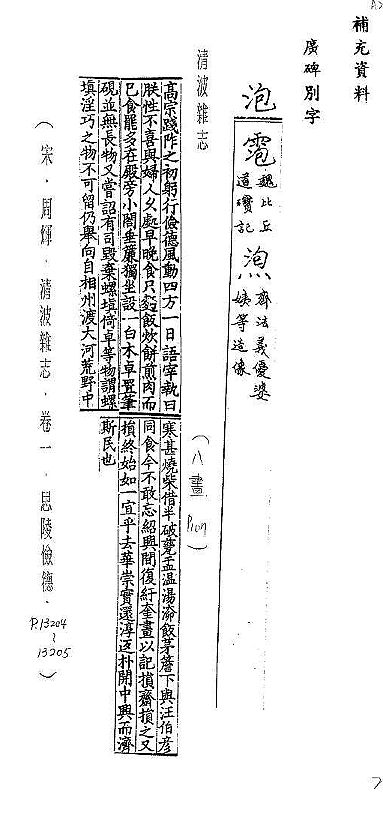 補充資料
廣碑別字
泡 雹 魏比丘道瓚記
齊法義優婆姨等造像
(八畫 )
清波雜志
高宗踐阼之初躬行儉德風動四方一日語宰執曰
朕性不喜與婦人久處早晚食只麪飯炊餅煎肉而
已食罷多在殿旁小閣垂簾獨坐設一白木卓置筆
硯並無長物又嘗詔有司毀棄螺填倚卓等物謂螺
填淫巧之物不可留仍舉向自相州渡大河荒野中
寒甚燒柴借半破甕盂溫湯瀹飯茅簷下與汪伯彥
同食今不敢忘紹興間復紆奎畫以記損齋損之又
損終始如一宜乎去華崇實還淳返朴開中興而濟
斯民也
(宋.周煇.清波雜志.卷一.思陵儉德.P.13204~13205)